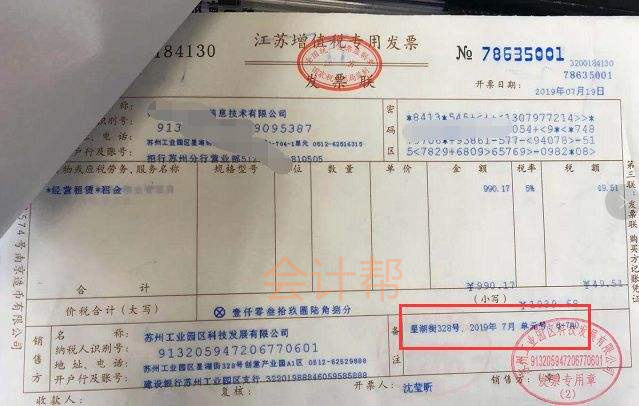 184130
江苏增值税专用发票
发票联
№ 78635001
3200184130
78635001
开票日期：2019年07月19日
名称：
息技术有限公司
识别号：
913
9095387
址、电话：
苏州工业园区星湖
-704-1单元 0512-62514315
开户行及账号：
招行苏州分行营业部512
810505
密码区
物或应税劳务、服务名称
规格型号
单位
数量
单价
金额
税率
税额
*经营租赁*租金
990.17
5%
49.51
合计
¥990.17
¥49.51
会计帮
价税合计（大写）
壹仟零叁拾玖圆陆角捌分
（小写）
¥1039.68
销售方
名称：
苏州工业园区科技发展有限公司
纳税人识别号：
913205947206770601
地址、电话：
苏州工业园区星湖街328号创意产业园A1区 0512-62529888
开户行及账号：
建设银行苏州工业园区支行 32201988846059585888
备注
星湖街328号，2019年 7月 单元号
913205947206770601
发票专用章
(2)
收款人：
复核：
开票人：
沈莹昕
销售
第三联：发票联 购买方记账凭证
574号南京造币有限公司